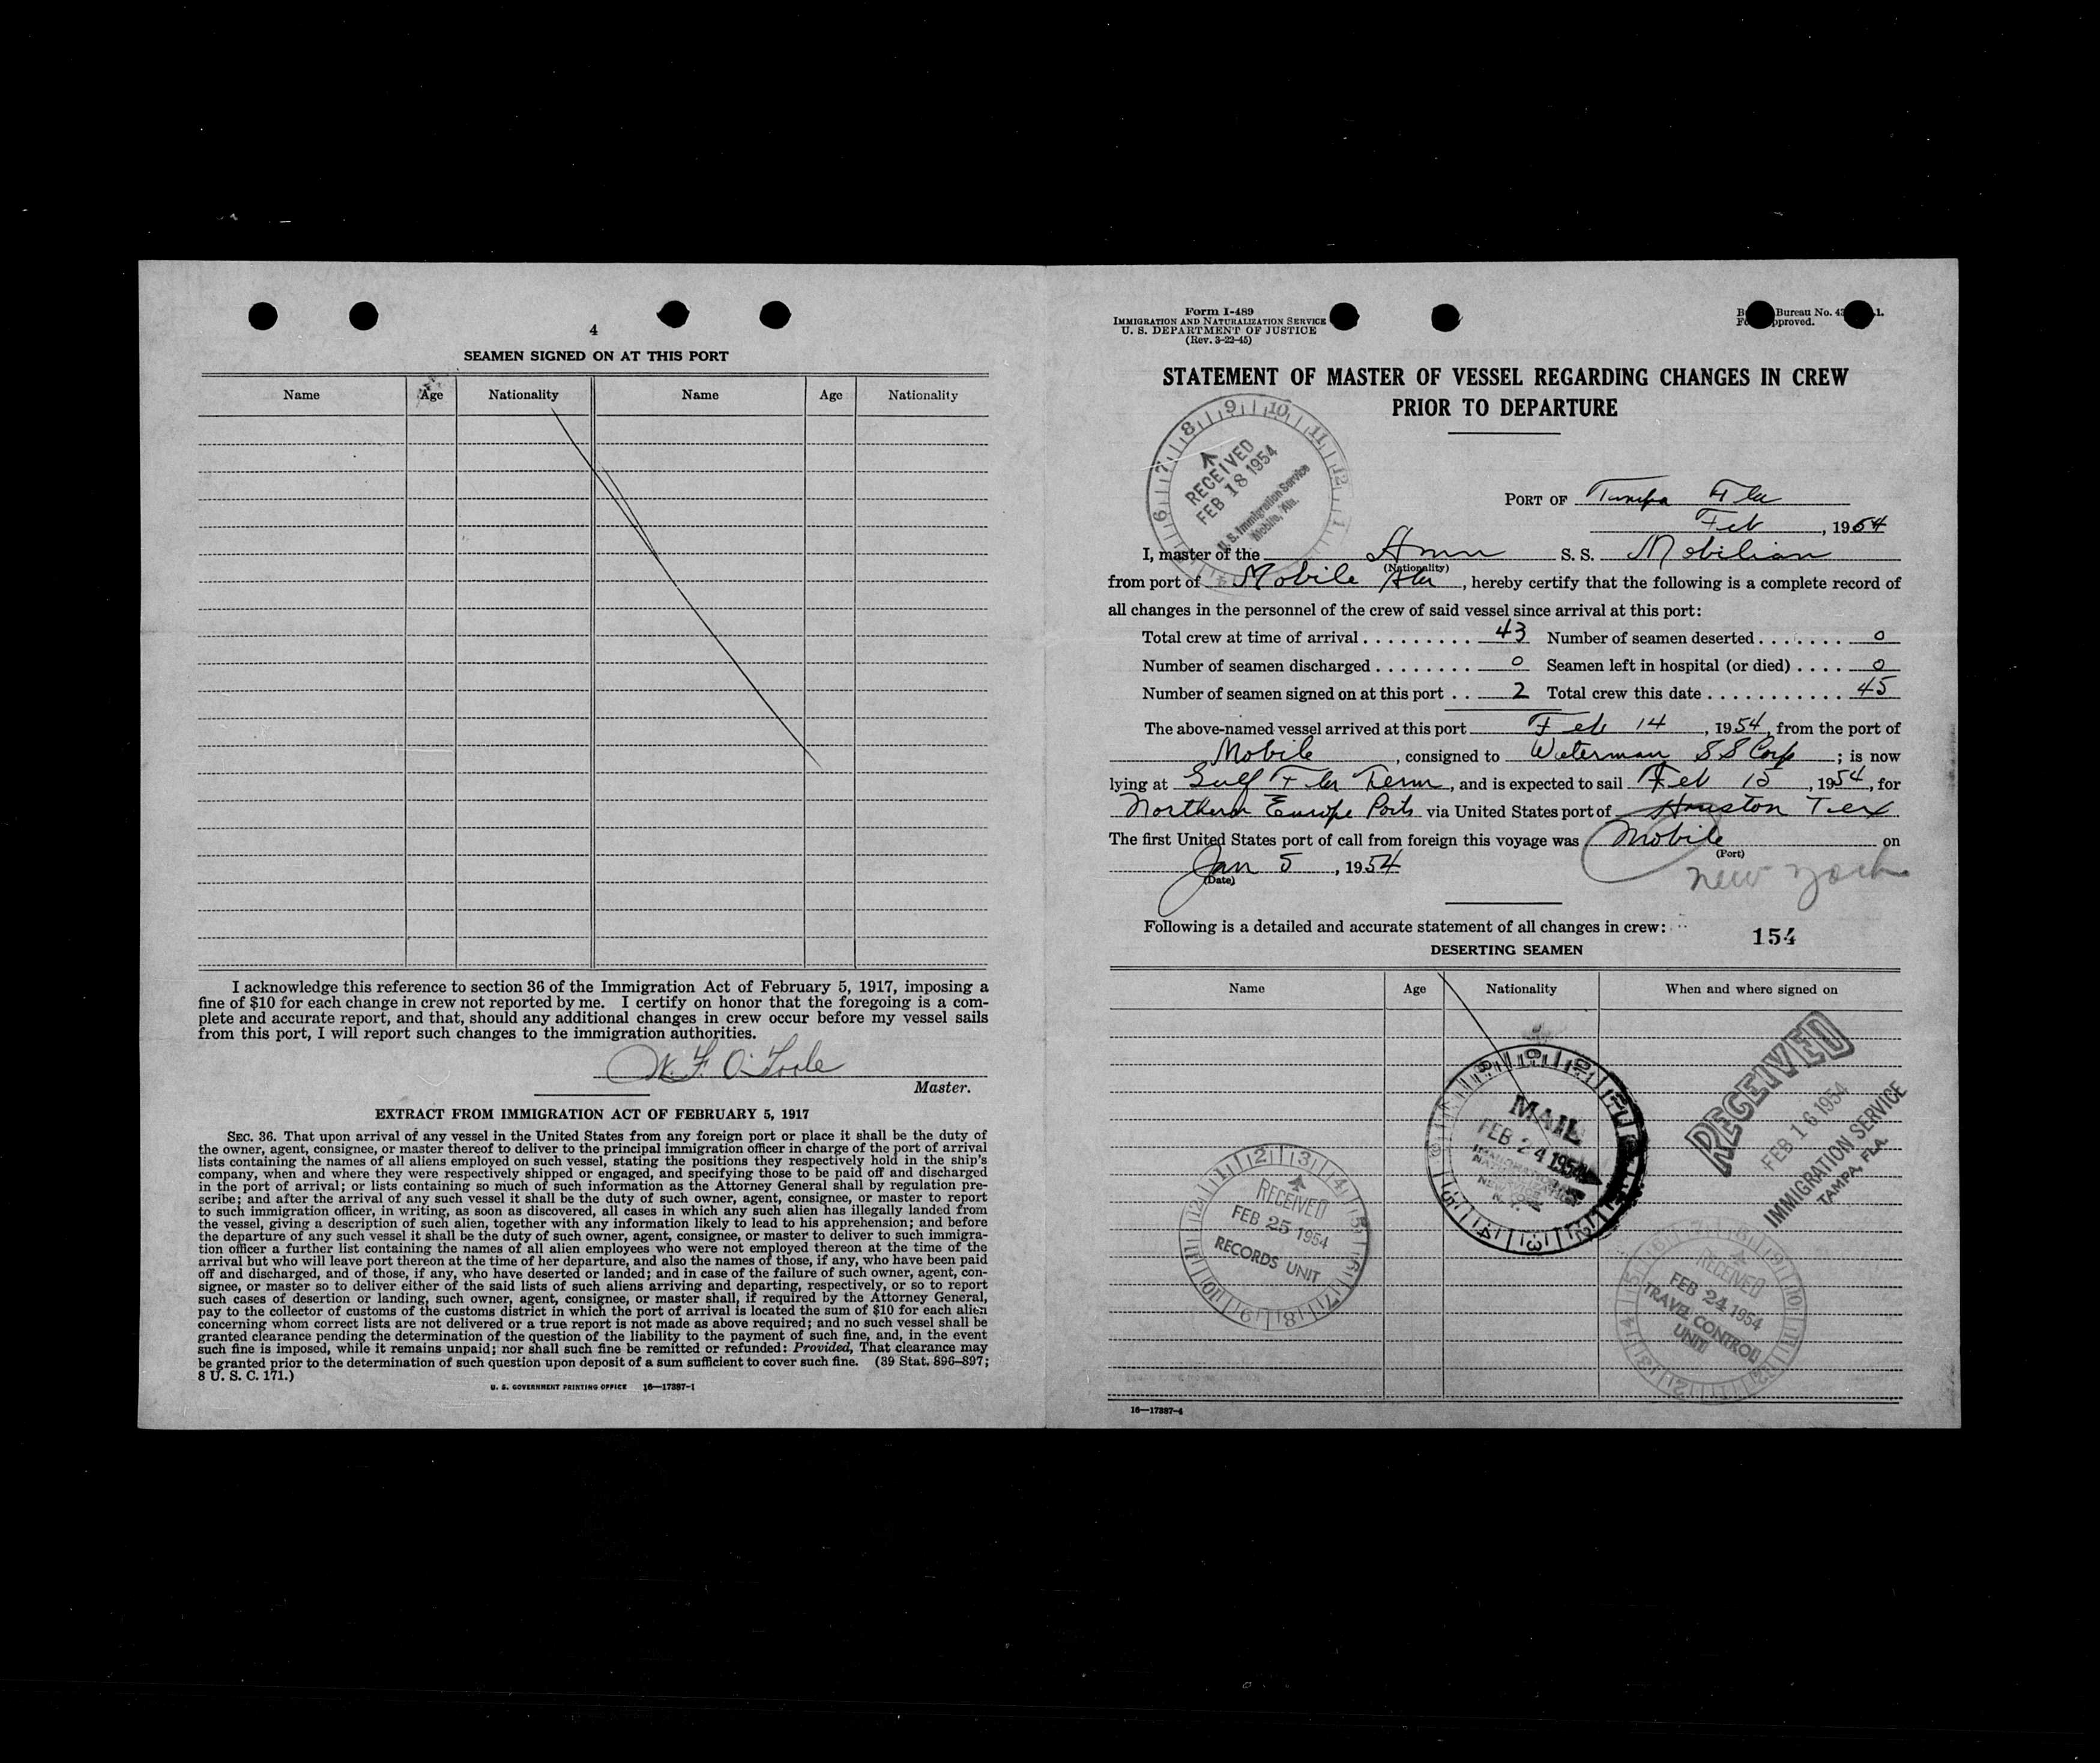 4
SEAMEN SIGNED ON AT THIS PORT
Name Age Nationality Name Age Nationality
I acknowledge this reference to section 36 of the Immigration Act of February 5, 1917, imposing a
fine of $10 for each change in crew not reported by me. I certify on honor that the foregoing is a com-
plete and accurate report, and that, should any additional changes in crew occur before my vessel sails
from this port, I will report such changes to the immigration authorities.
W. F. O'Toole
Master.
EXTRACT FROM IMMIGRATION ACT OF FEBRUARY 5, 1917
SEC. 36. That upon arrival of any vessel in the United States from any foreign port or place it shall be the duty of
the owner, agent, consignee, or master thereof to deliver to the principal immigration officer in charge of the port of arrival
lists containing the names of all aliens employed on such vessel, stating the positions they respectively hold in the ship's
company, when and where they were respectively shipped or engaged, and specifying those to be paid off and discharged
in the port of arrival; or lists containing so much of such information as the Attorney General shall by regulation pre-
scribe; and after the arrival of any such vessel it shall be the duty of such owner, agent, consignee, or master to report
to such immigration officer, in writing, as soon as discovered, all cases in which any such alien has illegally landed from
the vessel, giving a description of such alien, together with any information likely to lead to his apprehension; and before
the departure of any such vessel it shall be the duty of such owner, agent, consignee, or master to deliver to such immigra-
tion officer a further list containing the names of all alien employees who were not employed thereon at the time of the
arrival but who will leave port thereon at the time of her departure, and also the names of those, if any, who have been paid
off and discharged, and of those, if any, who have deserted or landed; and in case of the failure of such owner, agent, con-
signee, or master so to deliver either of the said lists of such aliens arriving and departing, respectively, or so to report
such cases of desertion or landing, such owner, agent, consignee, or master shall, if required by the Attorney General,
pay to the collector of customs of the customs district in which the port of arrival is located the sum of $10 for each alien
concerning whom correct lists are not delivered or a true report is not made as above required; and no such vessel shall be
granted clearance pending the determination of the question of the liability to the payment of such fine, and, in the event
such fine is imposed, while it remains unpaid; nor shall such fine be remitted or refunded: Provided, That clearance may
be granted prior to the determination of such question upon deposit of a sum sufficient to cover such fine. (39 Stat. 896-897;
8 U. S. C. 171.)
U. S. GOVERNMENT PRINTING OFFICE 16—17387-1
Form I-489
IMMIGRATION AND NATURALIZATION SERVICE
U. S. DEPARTMENT OF JUSTICE
(Rev. 3-22-45)
Bureau No.
STATEMENT OF MASTER OF VESSEL REGARDING CHANGES IN CREW
PRIOR TO DEPARTURE
RECEIVED
FEB 18 1954
U. S. Immigration Service
Mobile, Ala.
PORT OF Tampa Fla
Feb , 1954
I, master of the Amn S. S. Mobilian
(Nationality)
from port of Mobile Ala , hereby certify that the following is a complete record of
all changes in the personnel of the crew of said vessel since arrival at this port:
Total crew at time of arrival . . . . . . . . . 43 Number of seamen deserted . . . . . . . 0
Number of seamen discharged . . . . . . . . 0 Seamen left in hospital (or died) . . . . 0
Number of seamen signed on at this port . . 2 Total crew this date . . . . . . . . . . . 45
The above-named vessel arrived at this port Feb 14 , 1954, from the port of
Mobile , consigned to Waterman S S Corp ; is now
lying at Gulf Fla Term , and is expected to sail Feb 15 , 1954, for
Northern Europe Ports via United States port of Houston Tex
The first United States port of call from foreign this voyage was Mobile on
(Port)
Jan 5 , 1954
(Date)
New York
Following is a detailed and accurate statement of all changes in crew:
154
DESERTING SEAMEN
Name Age Nationality When and where signed on
RECEIVED
FEB 16 1954
IMMIGRATION SERVICE
TAMPA, FLA.
MAIL
FEB 24 1954
RECEIVED
FEB 25 1954
RECORDS UNIT
RECEIVED
FEB 24 1954
TRAVEL CONTROL
UNIT
16—17387-4